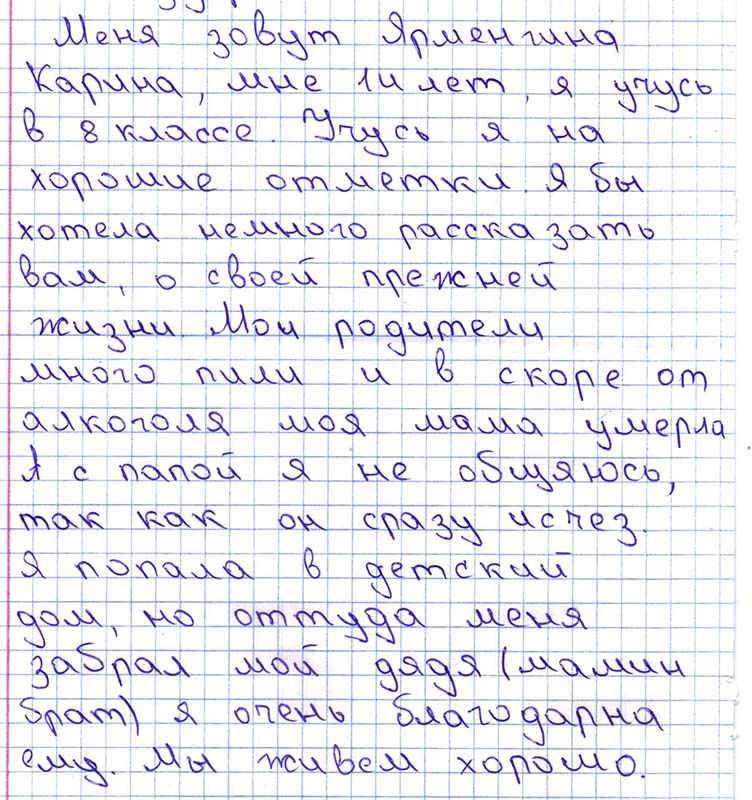 Меня зовут Ярменгина
Карина, мне 14 лет, я учусь
в 8 классе. Учусь я на
хорошие отметки. Я бы
хотела немного рассказать
вам, о своей прежней
жизни. Мои родители
много пили и в скоре от
алкоголя моя мама умерла
А с папой я не общяюсь,
так как он сразу исчез.
Я попала в детский
дом, но оттуда меня
забрал мой дядя (мамин
брат) я очень благодарна
ему. Мы живем хорошо.